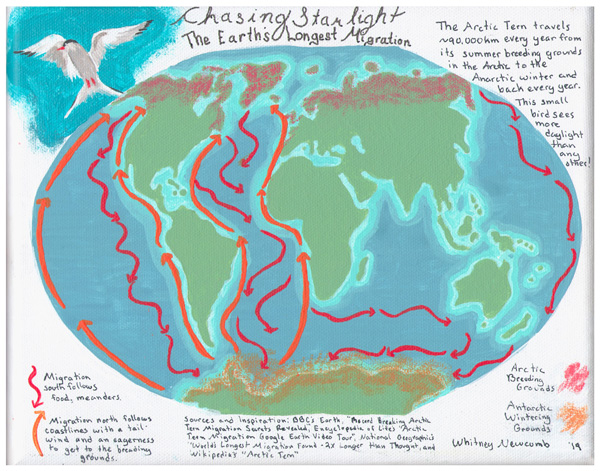 Chasing Starlight
The Earth's Longest Migration
The Arctic Tern travels
~90,000km every year from
its summer breeding grounds
in the Arctic to the
Anarctic winter and
back every year.
This small
bird sees
more
daylight
than
any
other!
Migration
south follows
food, meanders.
Migration north follows
coastlines with a tail-
wind and an eagerness
to get to the breading
grounds.
Sources and Inspiration: BBC's Earth, "Record Breaking Arctic
Tern Migration Secrets Revealed, Encyclopedia of Life's "Arctic
Tern Migration Google Earth Video Tour", National Geographic's
"World's Longest Migration Found - 2x Longer than Thought, and
Wikipedia's "Arctic Tern"
Arctic
Breeding
Grounds
Antarctic
Wintering
Grounds
Whitney Newcomb '19